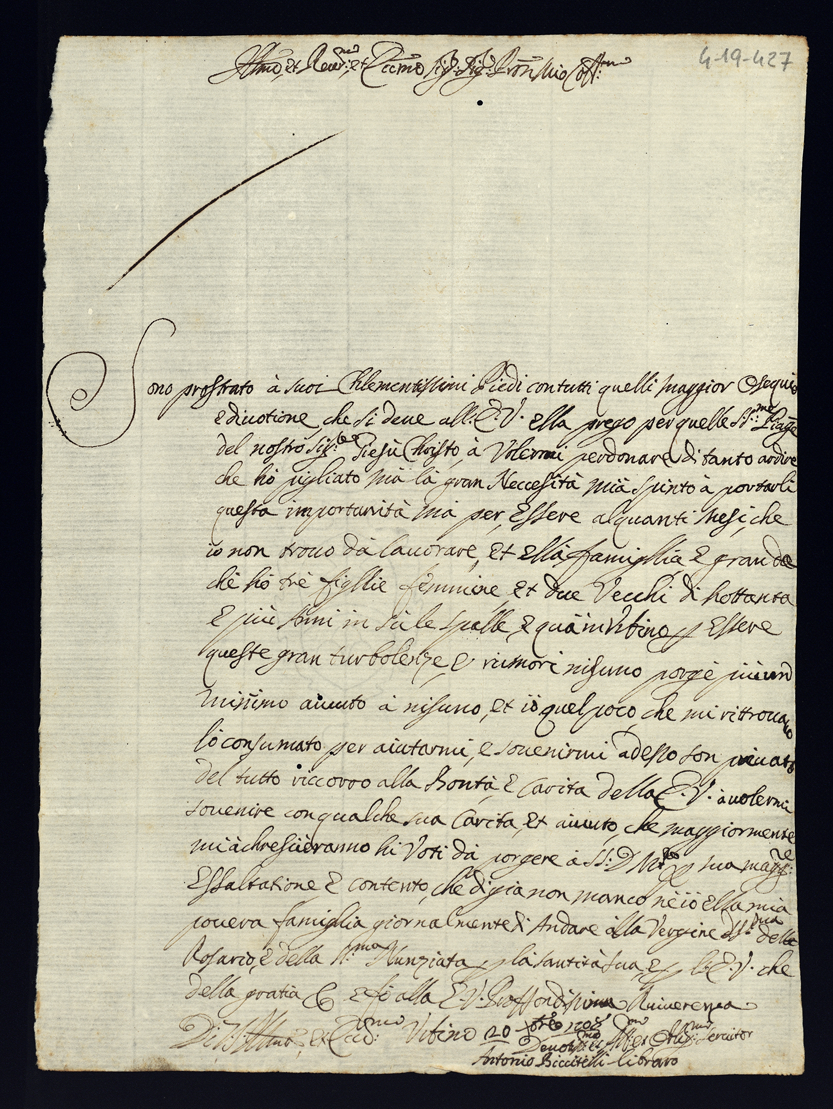 4-19-427
Ill.mo et Rever.mo et Ecc.mo Sig.r Sig.r Pron Mio Coll.mo
Sono prostrato à suoi Chlementissimi Piedi con tutti quelli maggior Osequio
e divotione che si deve all'E.V. ella prego per quelle SS.me Piage
del nostro Sig.re Giesù Christo, à Volermi perdonare di tanto ardire
che hò pigliato mà la gran Neccesità mià spinto à portarli
questa importunità mà per Essere alquanti Mesi, che
io non trovo dà lavorare, et ella famiglia è grande
chè hò trè figlie femmine et due Vecchi di hottanta
e più Anni in sù le spalle, e quà in Urbino p Essere
queste gran turbolenze, e rumori nisuno porgè più un
minimo aiuuto à nisuno, et iò quel poco, che mi ritrouavo
lò consumato per aiutarmi, e souenirmi adesso son privato
del tutto riccorro alla Bontà, e Carita della E.V. à volermi
souenire con qualche sua Carità, et aiuuto che maggiormente
mi àchresieranno hi Voti dà porgere à S: D. M.tà p sua magg.re
Essaltatione e contento, che digia non manco nè iò ella mia
povera famiglia giornalmente di Andare alla Vergine SS.ma della
Rosario, e della SS.ma Nunziata p la santità sua e p l'E.V. che
della gratia &c e fò alla E.V. Proffondissima Riverenza
Di V.S. Ill.ma et Ecc.ma Urbino 20 8bre 1708
Devotiss.mo et Obblig.mo Servitor
Antonio Biccitelli libraro